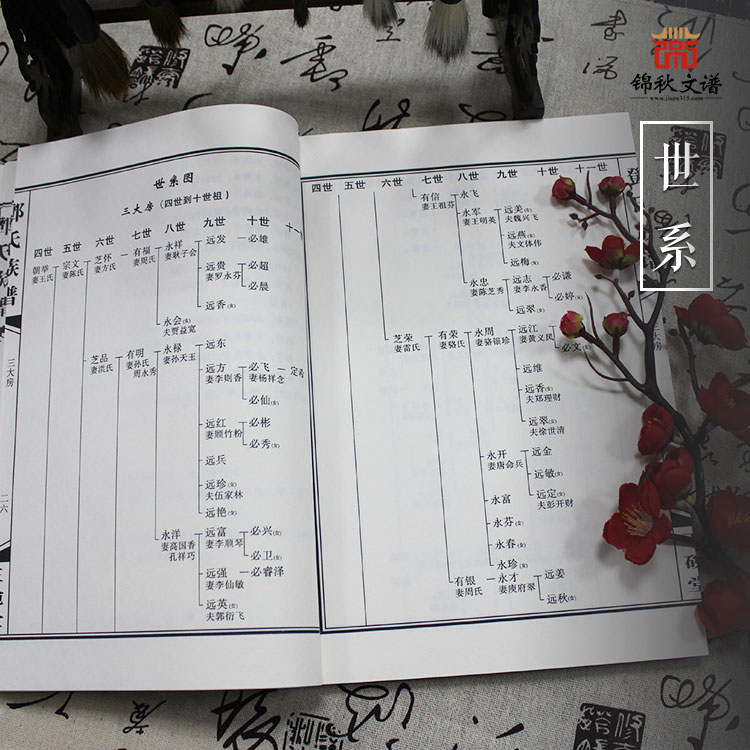 锦秋文谱
www.jiapu315.com
世系
世系图
三大房（四世到十世祖）
四世 五世 六世 七世 八世 九世 十世 十一
朝举 宗文 芝怀 有福 永祥 远发 必雄
妻王氏 妻陈氏 妻方氏 妻周氏 妻耿子会
远贵 必超
妻罗永芬
必晨
远香(女)
永会(女)
夫贾益宽
芝品 有明 永禄 远东
妻洪氏 妻孙氏 妻孙天王
周永秀
远方 必飞 定
妻李则香 妻杨祥念
必仙(女)
远红 必彬
妻顾竹粉
必秀(女)
远兵
远珍(女)
夫伍家林
远艳(女)
永洋 远富 必兴(女)
妻高国香 妻李顺琴
孔祥巧
必卫(女)
远强 必睿泽
妻李仙敏
远英(女)
夫郭衍飞
氏族谱
三大房
二六
四世 五世 六世 七世 八世 九世 十世 十一世
有信 永飞
妻王祖芬
永军 远美(女)
妻王明英 夫魏兴飞
远燕(女)
夫文体伟
远梅(女)
永忠 远志 必谦
妻陈芝秀 妻李永香
必婷(女)
远翠(女)
芝荣 有荣 永周 远江
妻雷氏 妻骆氏 妻骆银珍 妻黄义凤
必文(女)
远维
远香(女)
夫郑理财
远翠(女)
夫徐世清
永开 远金
妻唐俞兵
远敏(女)
远定(女)
夫彭开财
永富
永芬(女)
永春(女)
永珍(女)
有银 永才 远姜
妻周氏 妻庾府翠
远秋(女)
大房